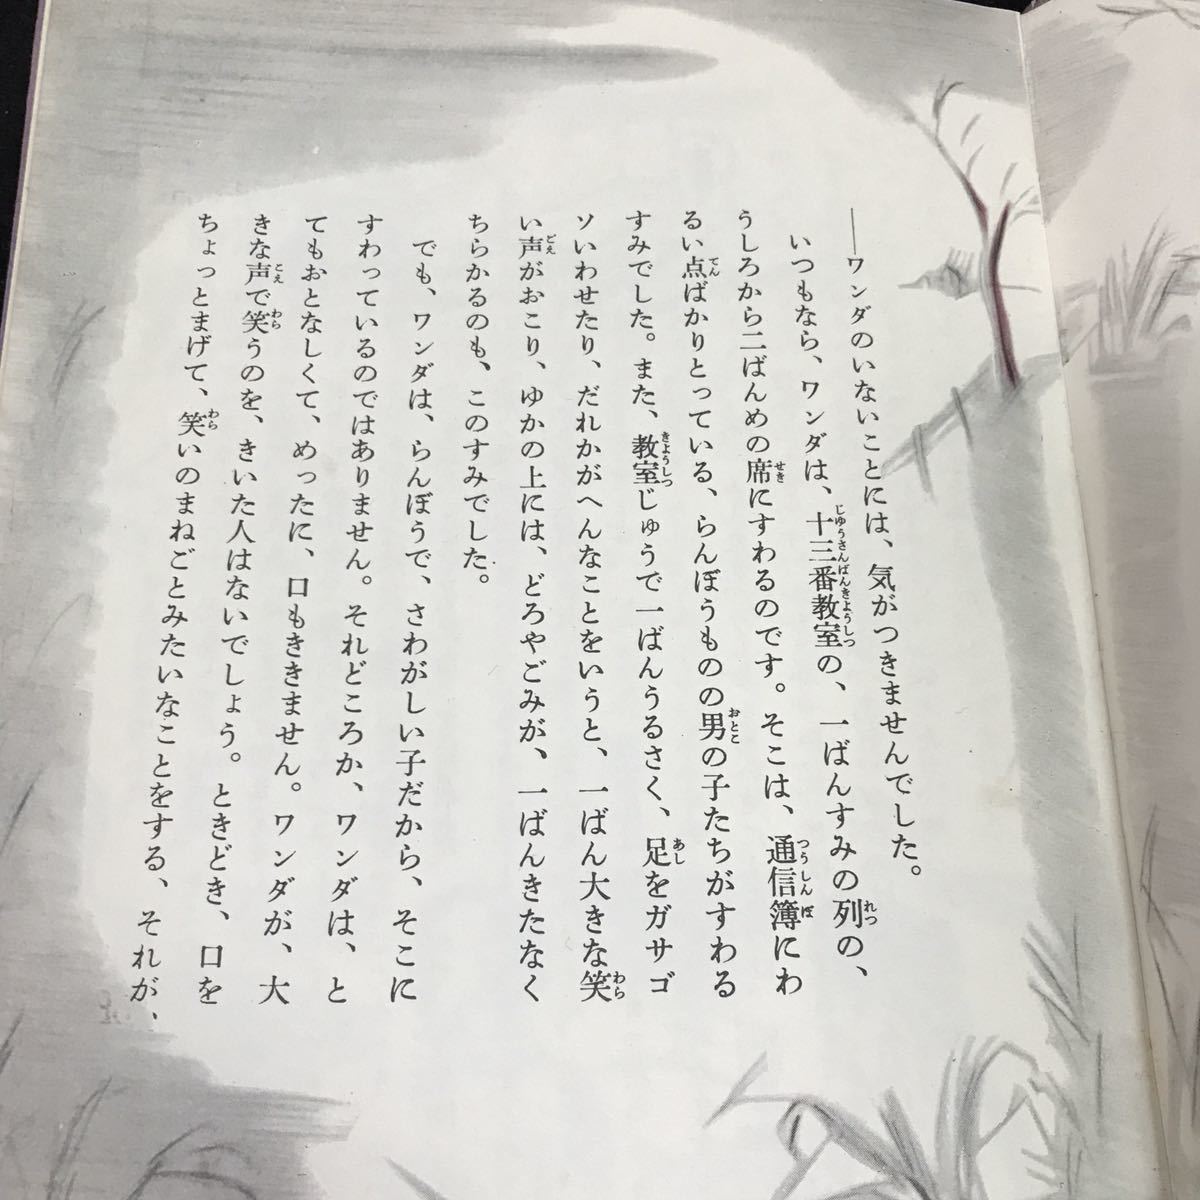 ――ワンダのいないことには、気がつきませんでした。
いつもなら、ワンダは、十三番教室の、一ばんすみの列の、
うしろから二ばんめの席にすわるのです。そこは、通信簿にわ
るい点ばかりとっている、らんぼうものの男の子たちがすわる
すみでした。また、教室じゅうで一ばんうるさく、足をガサゴ
ソいわせたり、だれかがへんなことをいうと、一ばん大きな笑
い声がおこり、ゆかの上には、どろやごみが、一ばんきたなく
ちらかるのも、このすみでした。
でも、ワンダは、らんぼうで、さわがしい子だから、そこに
すわっているのではありません。それどころか、ワンダは、と
てもおとなしくて、めったに、口もききません。ワンダが、大
きな声で笑うのを、きいた人はないでしょう。ときどき、口を
ちょっとまげて、笑いのまねごとみたいなことをする、それが、